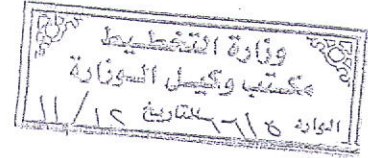 وزارة التخطيط
مكتب وكيل الوزارة
الوارد بتاريخ ١٢ / ١١